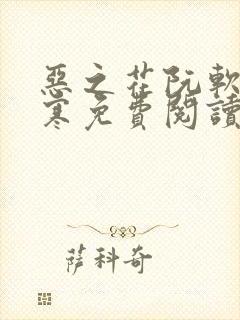 惡之花阮軟
寒免費閱讀
薩科奇